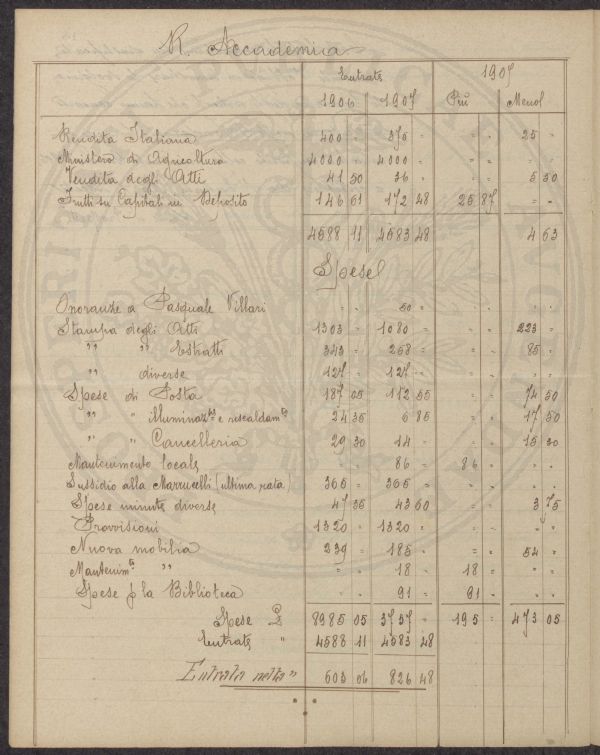 R. Accademia
Entrate 1907
1906 1907 Più Meno
Rendita Italiana 400 " 375 " " " 25 "
Ministero di Agricoltura 4000 " 4000 " " " " "
Vendita degli Atti 41 50 36 " " " 5 50
Frutti su Capitali in Deposito 146 61 172 48 25 87 " "
4588 11 4583 48 4 63
Spese
Onoranze a Pasquale Villari " " 50 " " " " "
Stampa degli Atti 1303 " 1080 " " " 223 "
" " Estratti 343 " 258 " " " 85 "
" diverse 127 " 127 " " " " "
Spese di Posta 187 05 112 55 " " 74 50
" " illuminaz. e riscaldam. 24 35 6 85 " " 17 50
" " Cancelleria 29 30 14 " " " 15 30
Mantenimento locale 86 " 86 " " "
Sussidio alla Marrucelli (ultima rata) 365 " 365 " " " " "
Spese minute diverse 47 35 43 60 " " 3 75
Provvisioni 1320 " 1320 " " " " "
Nuova mobilia 239 " 185 " " " 54 "
Mantenim.to " " " 18 " 18 " " "
Spese p la Biblioteca " " 91 " 91 " " "
Spese £ 3985 05 3757 " 195 " 473 05
Entrate " 4588 11 4583 48
Entrata netta " 603 06 826 48